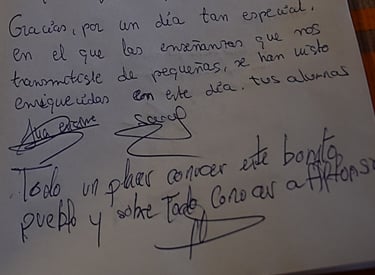 Gracias, por un día tan especial,
en el que las enseñanzas que nos
transmitiste de pequeñas, se han visto
enriquecidas en este día. tus alumnas
Todo un placer conocer este bonito
pueblo y sobre Todo Conocer a Alfonso